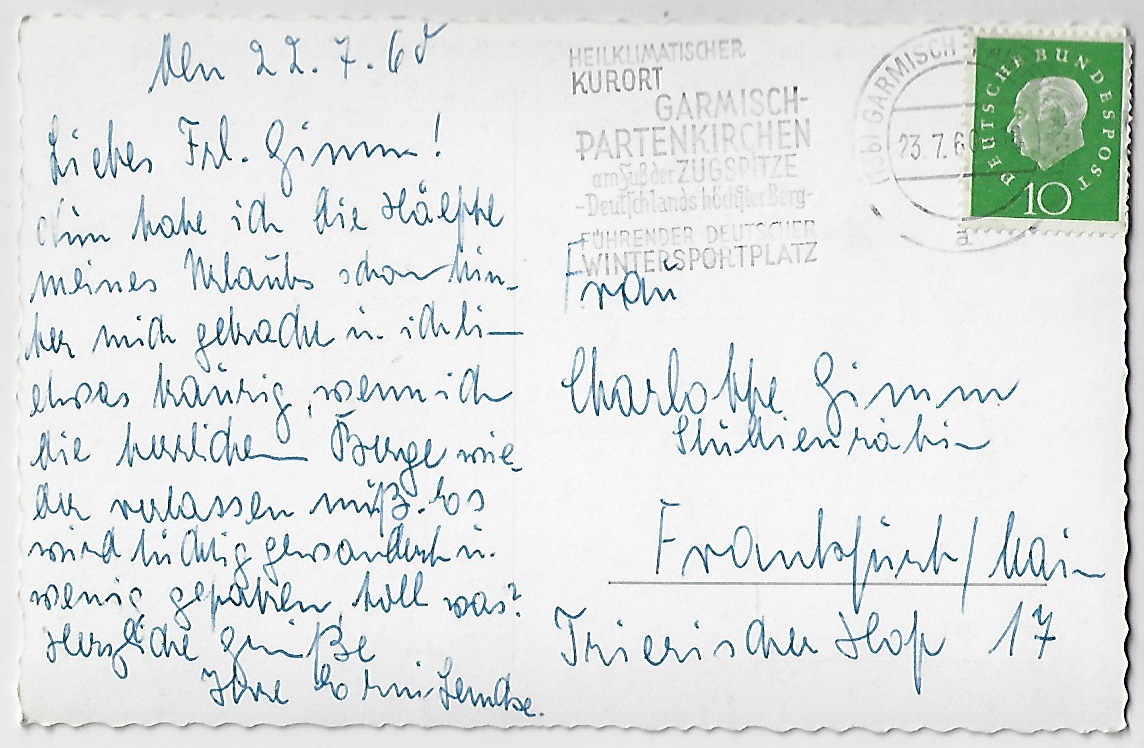 den 22.7.60
Liebes Frl. Gimm!
Nun habe ich die Hälfte
meines Urlaubs schon hin-
ter mich gebracht u. ich bi—
etwas traurig, wenn ich
die herrlichen Berge wie-
der verlassen muß. Es
wird tüchtig gewandert u.
wenig gefahren, toll was?
Herzliche Grüße
Ihre
HEILKLIMATISCHER
KURORT
GARMISCH-
PARTENKIRCHEN
am Fuß der ZUGSPITZE
-Deutschlands höchster Berg-
FÜHRENDER DEUTSCHER
WINTERSPORTPLATZ
(13b) GARMISCH
23.7.60
a
DEUTSCHE BUNDESPOST
10
Frau
Charlotte Gimm
Studienrätin
Frankfurt/Main
Trierischer Hof 17